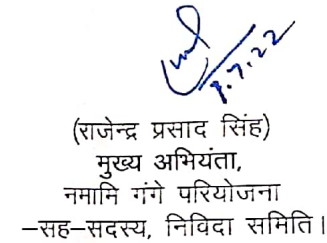 8.7.22
(राजेन्द्र प्रसाद सिंह)
मुख्य अभियंता,
नमामि गंगे परियोजना
–सह–सदस्य, निविदा समिति।